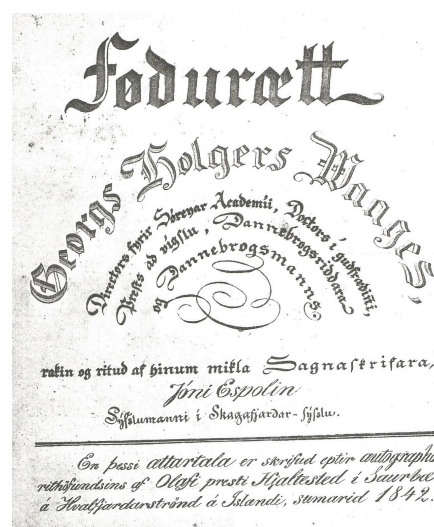 Føduraett
Georgs Holgers Waages,
Directors fyrir Sóreyar Academíi, Doctors í gudfrædinni,
Prests ad vigslu, Dannebrogsriddara
og Dannebrogsmanns
rakin og ritud af hinum mikla Sagnaskrifara,
Jóni Espolin
Sýsslumanni í Skagafjardar-sýsslu.
En þessi ættartala er skrifud eptir autographo
rithöfundsins af Olafi presti Hjaltested í Saurbæ
á Hvalfjardarströnd á Islandi, sumarid 1842.